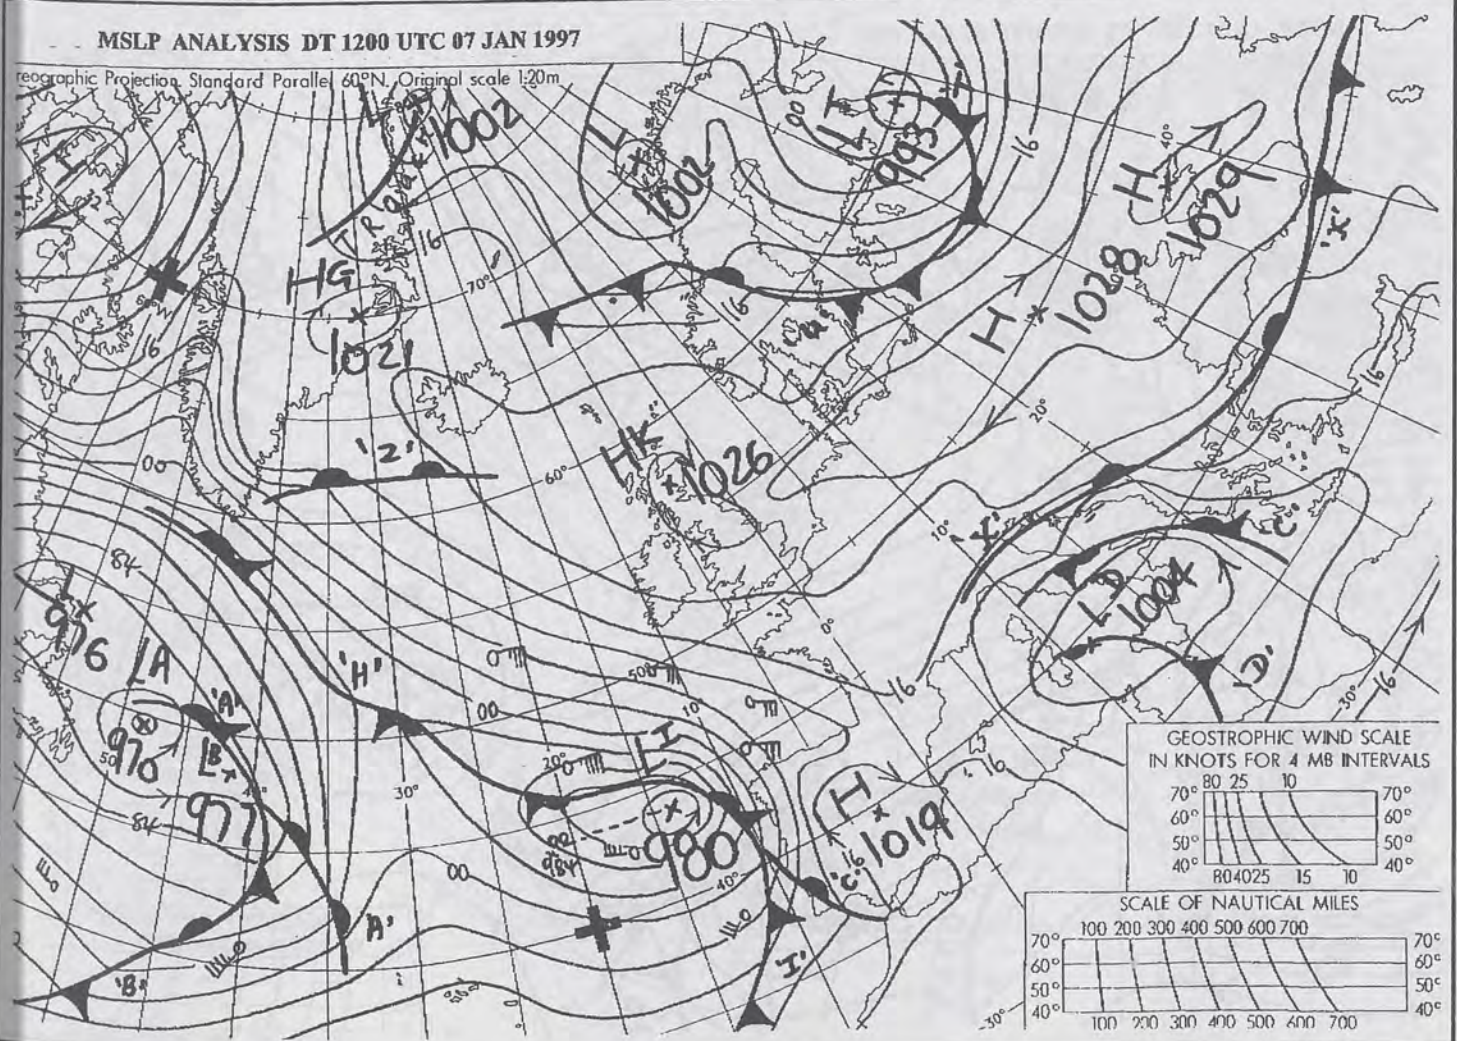 MSLP ANALYSIS DT 1200 UTC 07 JAN 1997
reographic Projection, Standard Parallel 60°N. Original scale 1:20m
L
1002
TROUGH
L
1002
LT
993
'T'
00
16
40°
H
1029
'X'
HG
1021
16
70°
16
'u'
H
1028
16
16
20°
'Z'
00
HK
1026
60°
10°
'X'
'C'
LD
1004
'D'
0°
16
16
30°
84
L
976
LA
970
50
'A'
LB
977
40°
84
'H'
00
30°
50°
10°
20°
LI
980
00
984
00
40°
H
1019
16
'C'
16
'A'
'B'
'I'
30°
GEOSTROPHIC WIND SCALE
IN KNOTS FOR 4 MB INTERVALS
80 25 10
70° 70°
60° 60°
50° 50°
40° 40°
80 40 25 15 10
SCALE OF NAUTICAL MILES
100 200 300 400 500 600 700
70° 70°
60° 60°
50° 50°
40° 40°
100 200 300 400 500 600 700